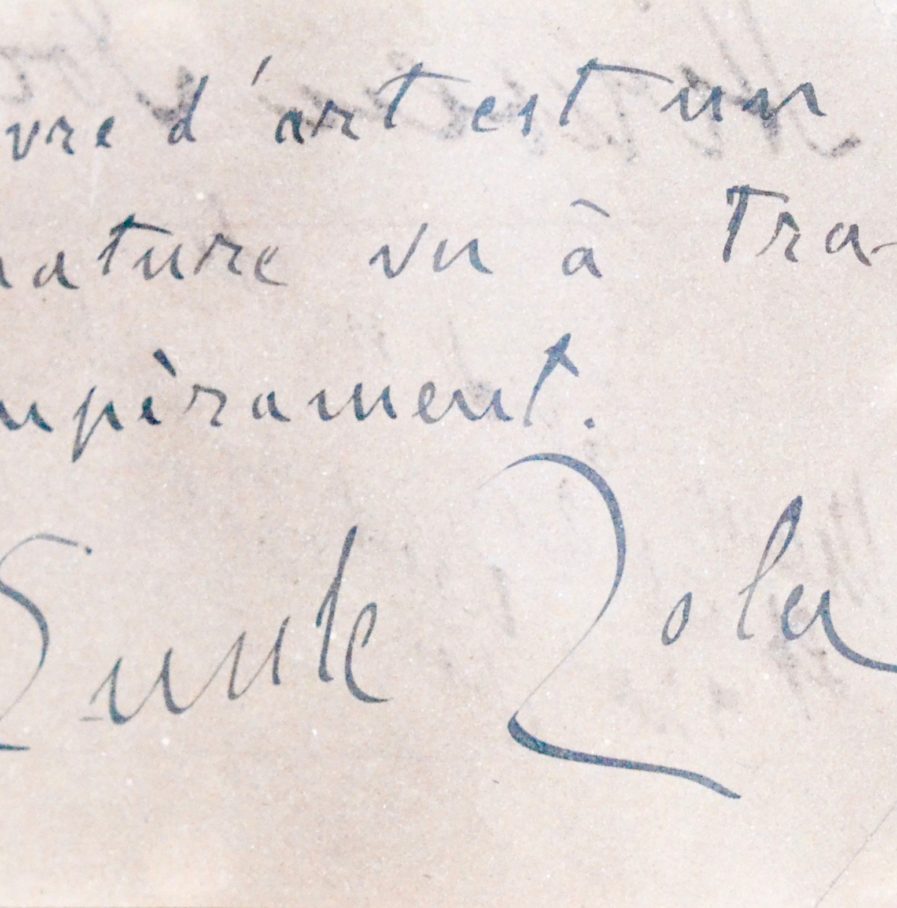 vre d'art est un
nature vu à tra-
mpèrament.
Emile Zola